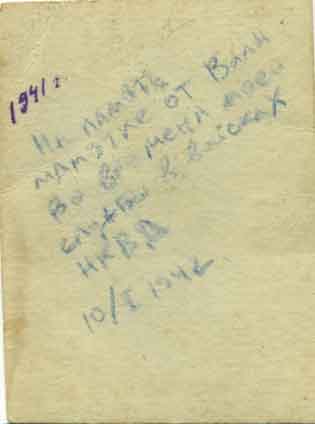 1941 г.
На память
мамочке от Вали
Во времена моей
службы в войсках
НКВД
10/I 1942.